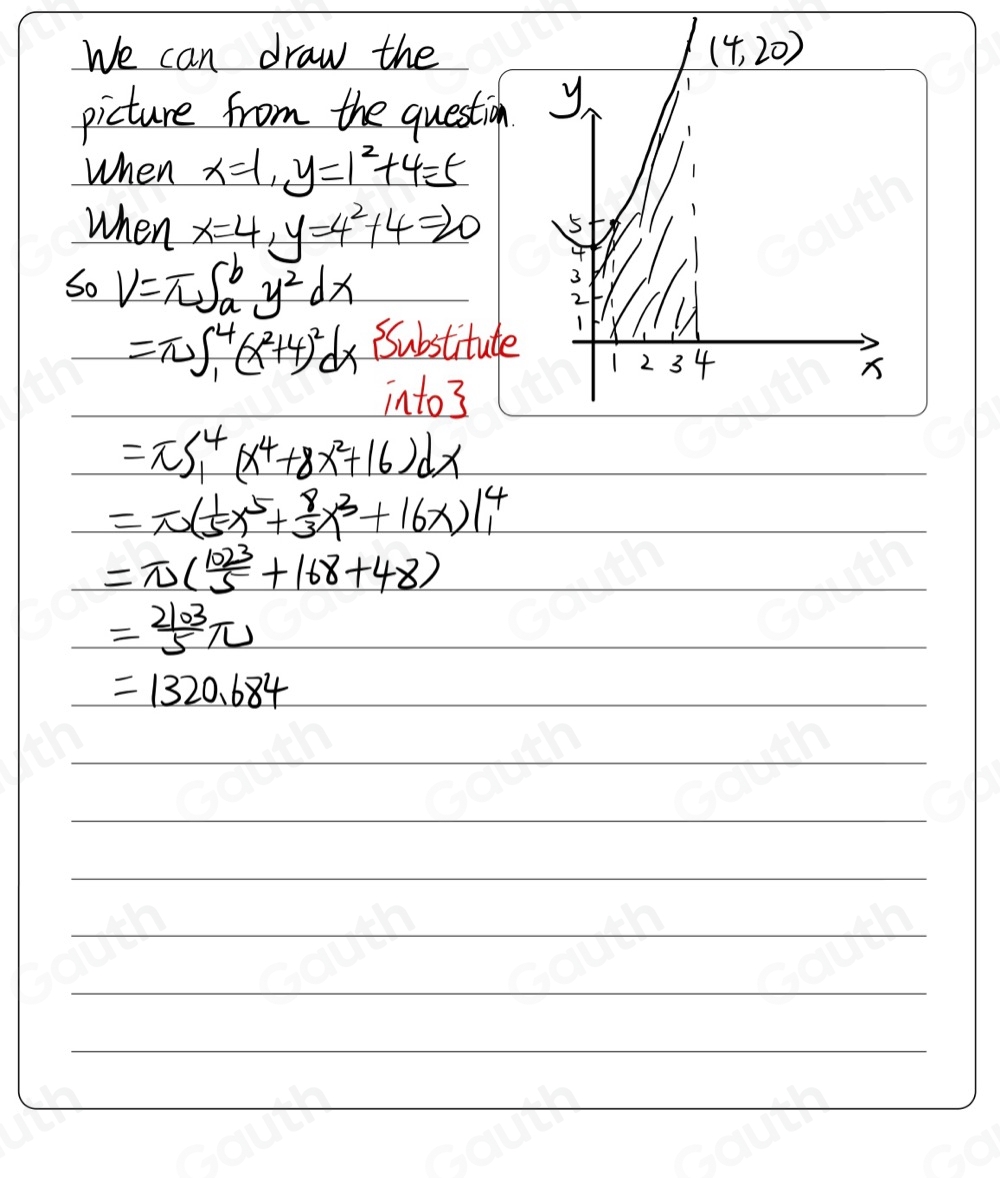 We can draw the
picture from the question.
When x=1, y=1²+4=5
When x=4, y=4²+4=20
So V=π∫ₐᵇ y²dx
=π∫₁⁴(x²+4)²dx {Substitute
into}
=π∫₁⁴(x⁴+8x²+16)dx
=π(1/5x⁵+8/3x³+16x)|₁⁴
=π(1023/5+168+48)
=2103/5π
=1320.684
(4,20)
y
5
4
3
2
1
1 2 3 4
x
Gauth